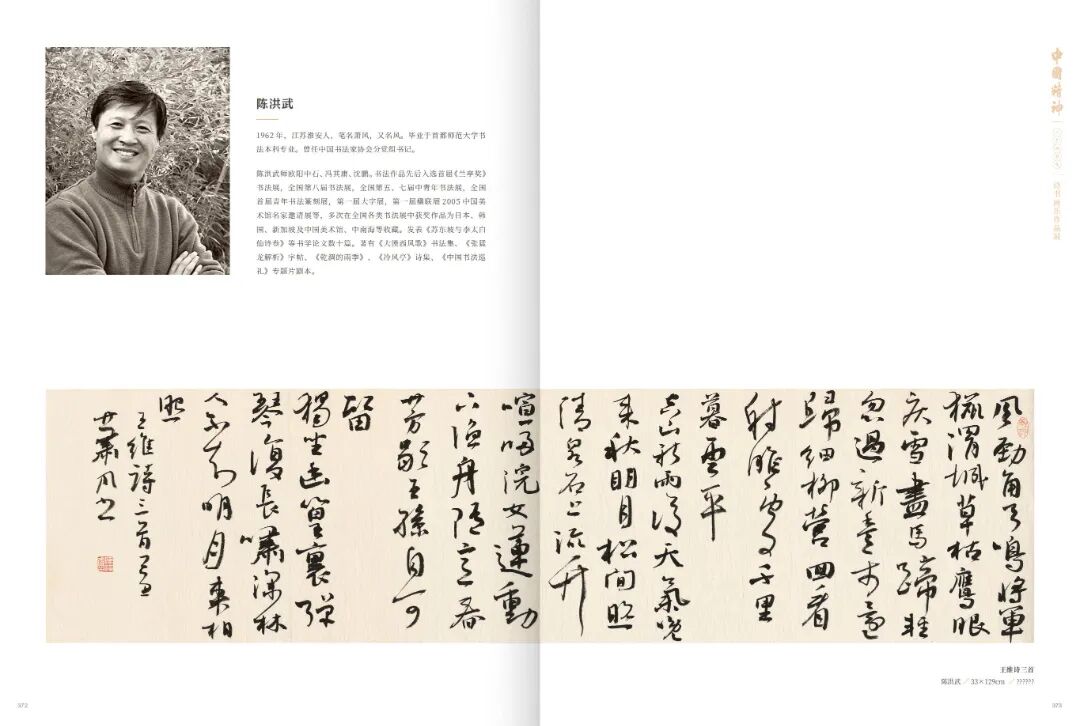 陈洪武
1962年，江苏淮安人，笔名萧风，又名风。毕业于首都师范大学书
法本科专业。曾任中国书法家协会分党组书记。
陈洪武师欧阳中石、冯其庸、沈鹏。书法作品先后入选首届《兰亭奖》
书法展，全国第八届书法展，全国第五、七届中青年书法展，全国
首届青年书法篆刻展，第一届大字展，第一届楹联展2005中国美
术馆名家邀请展等，多次在全国各类书法展中获奖作品为日本、韩
国、新加坡及中国美术馆、中南海等收藏。发表《苏东坡与李太白
仙诗卷》等书学论文数十篇。著有《大漠西风歌》书法集、《张猛
龙解析》字帖、《乾涸的雨季》、《冷风亭》诗集、《中国书法巡
礼》专题片剧本。
中國精神
诗书画乐作品展
風勁角弓鳴將軍
獵渭城草枯鷹眼
疾雪盡馬蹄輕
忽過新豐市還
歸細柳營回看
射雕處千里
暮雲平
空山新雨後天氣晚
來秋明月松間照
清泉石上流竹
喧歸浣女蓮動
下漁舟隨意春
芳歇王孫自可
留
獨坐幽篁裏彈
琴復長嘯深林
人不知明月來相
照
王維詩三首
蕭風書
王维诗三首
陈洪武 / 33×129cm / ??????
372
373